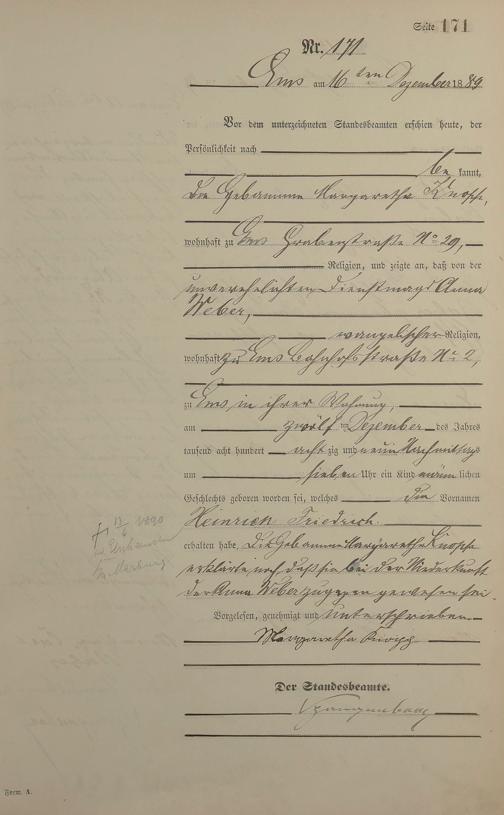 Seite 171
Nr. 171
Ems am 16ten Dezember 1889
Vor dem unterzeichneten Standesbeamten erschien heute, der
Persönlichkeit nach
be kannt,
die Hebamme Margaretha Knopp,
wohnhaft zu Ems Grabenstraße No 29,
Religion, und zeigte an, daß von der
unverehelichten Dienstmagd Anna
Weber,
evangelischer Religion,
wohnhaft zu Ems Bahnhofstraße No 2,
zu Ems in ihrer Wohnung,
am zwölf ten Dezember des Jahres
tausend acht hundert acht zig und neun Nachmittags
um sieben Uhr ein Kind männ lichen
Geschlechts geboren worden sei, welches die Vornamen
Heinrich Friedrich
erhalten habe. Die Hebamme Margaretha Knopp
erklärte noch daß sie bei der Niederkunft
der Anna Weber zugegen gewesen sei.
Vorgelesen, genehmigt und unterschrieben
Margaretha Knopp
Der Standesbeamte.
Form. A.
1890